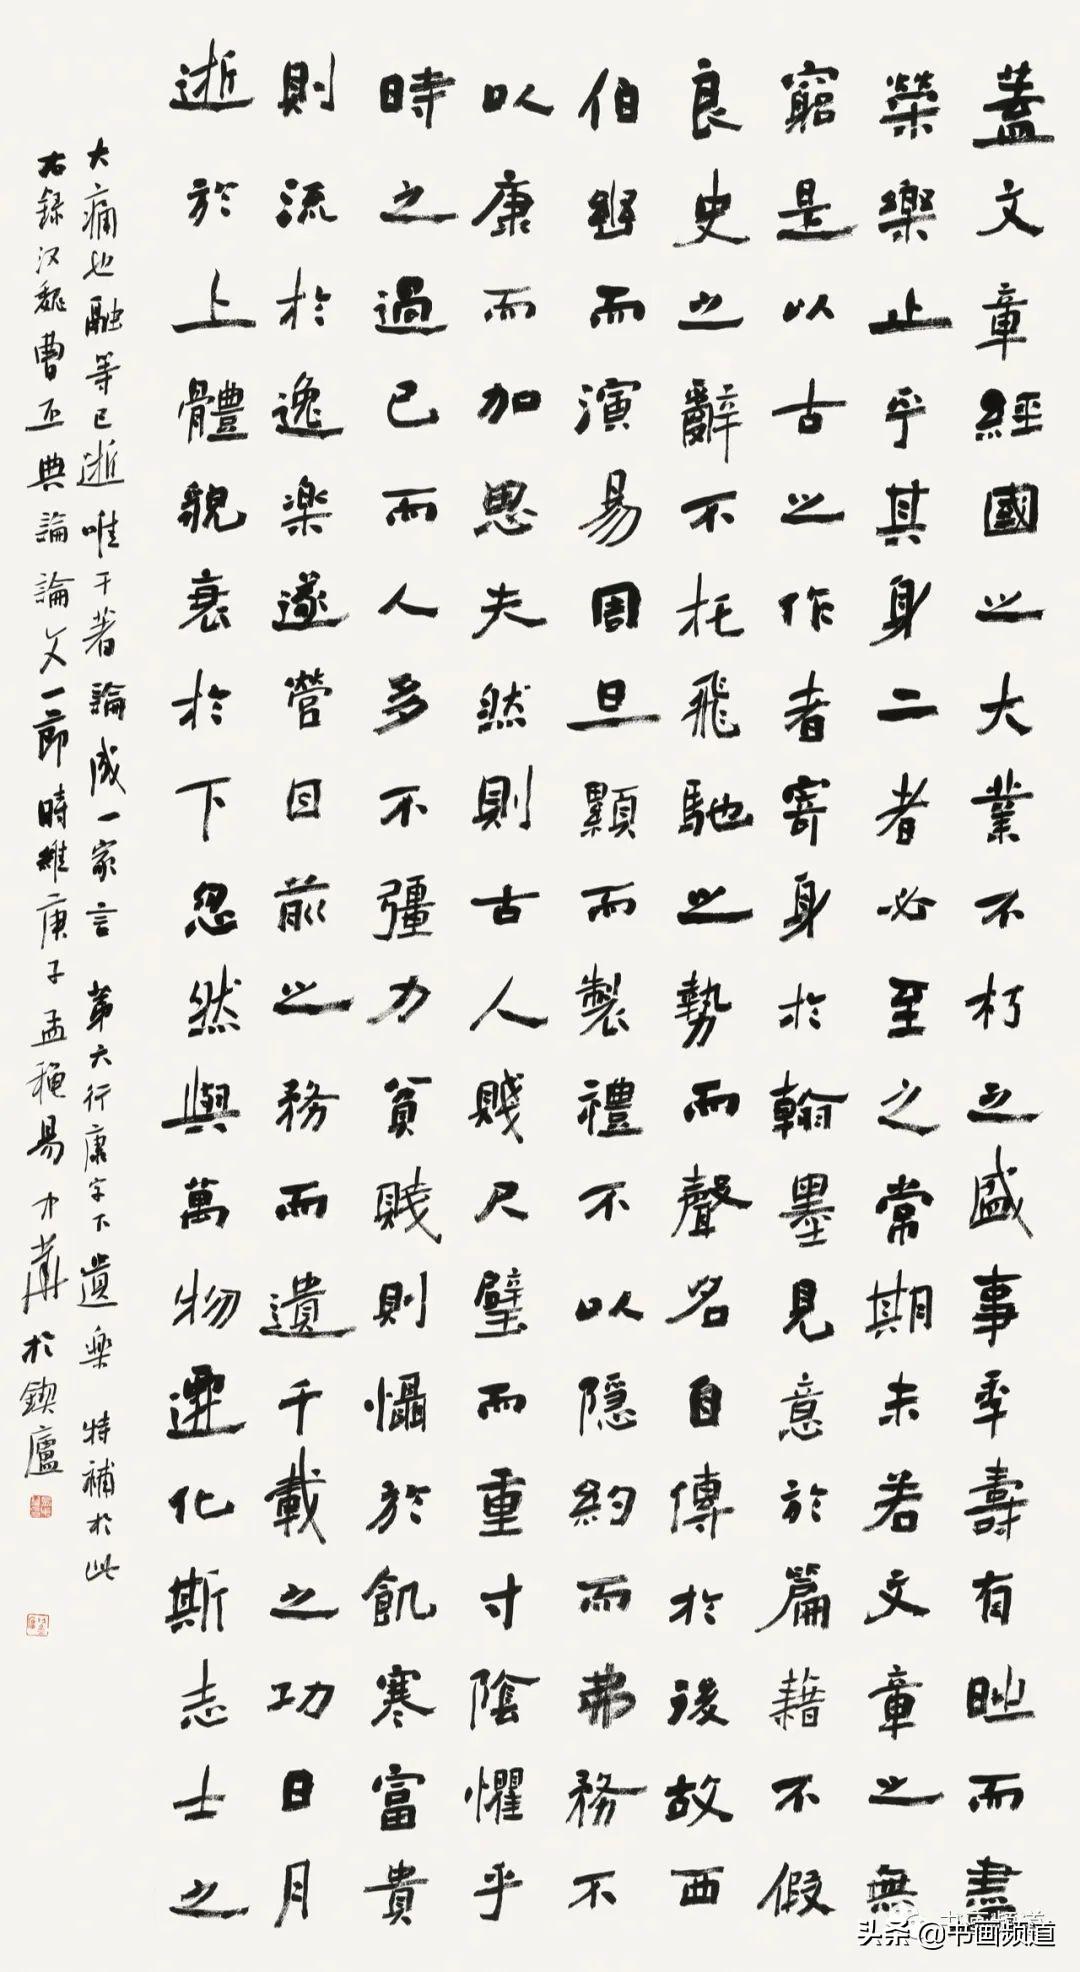 蓋文章經國之大業不朽之盛事年壽有時而盡
榮樂止乎其身二者必至之常期未若文章之無
窮是以古之作者寄身於翰墨見意於篇藉不假
良史之辭不托飛馳之勢而聲名自傳於後故西
伯幽而演易周旦顯而製禮不以隱約而弗務不
以康而加思夫然則古人賤尺璧而重寸陰懼乎
時之過已而人多不彊力貧賤則懾於飢寒富貴
則流於逸樂遂營目前之務而遺千載之功日月
逝於上體貌衰於下忽然與萬物遷化斯志士之
大痛也融等已逝唯干著論成一家言 第六行康字下遺樂 特補於此
右錄漢魏曹丕典論論文一節時維庚子孟秋易 於鍥廬
头条@书画频道